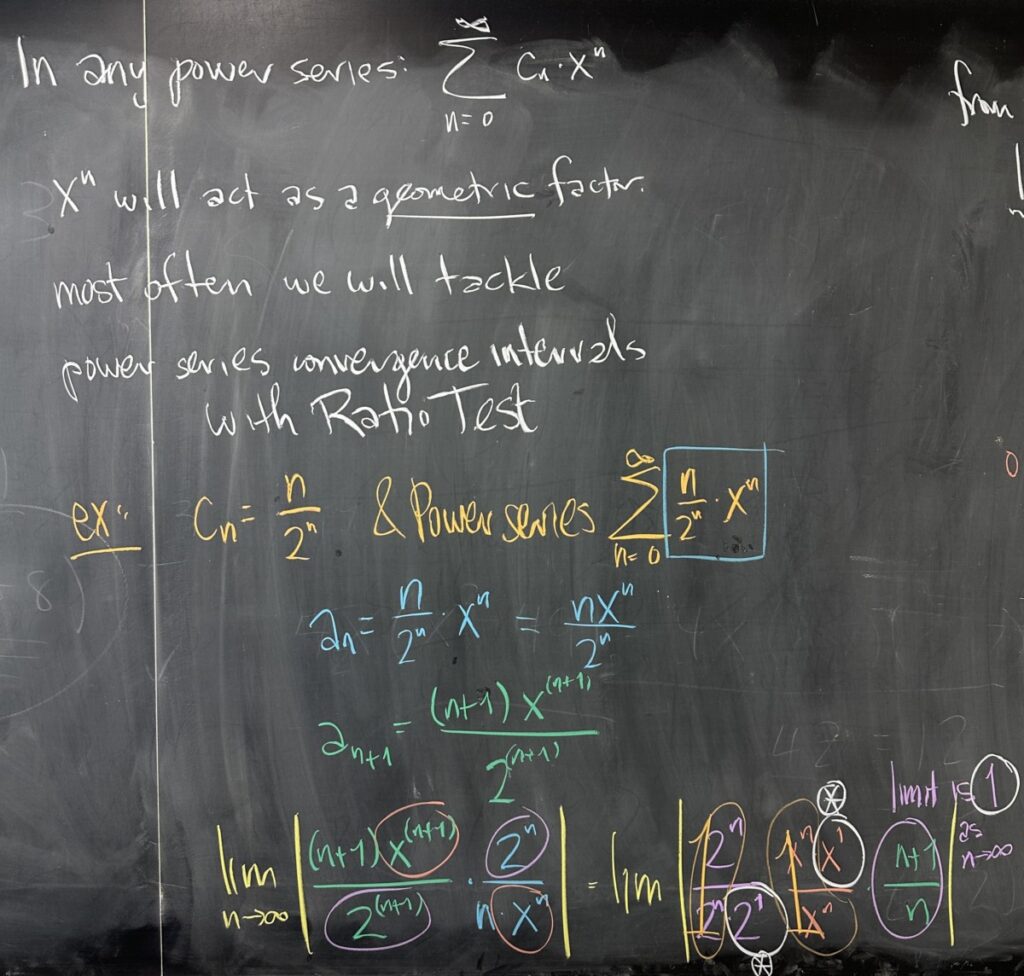 In any power series: ∑_{n=0}^{∞} Cₙ·Xⁿ
from
Xⁿ will act as a geometric factor.
most often we will tackle
power series convergence intervals
with Ratio Test
ex: Cₙ = n/2ⁿ & Power series ∑_{n=0}^{∞} n/2ⁿ · Xⁿ
aₙ = n/2ⁿ · Xⁿ = nXⁿ/2ⁿ
aₙ₊₁ = (n+1) X^(n+1) / 2^(n+1)
limit is 1 as n→∞
lim_{n→∞} | (n+1) X^(n+1) / 2^(n+1) · 2ⁿ / n·Xⁿ | = lim | 2ⁿ / 2ⁿ·2¹ · Xⁿ X¹ / Xⁿ · n+1 / n |